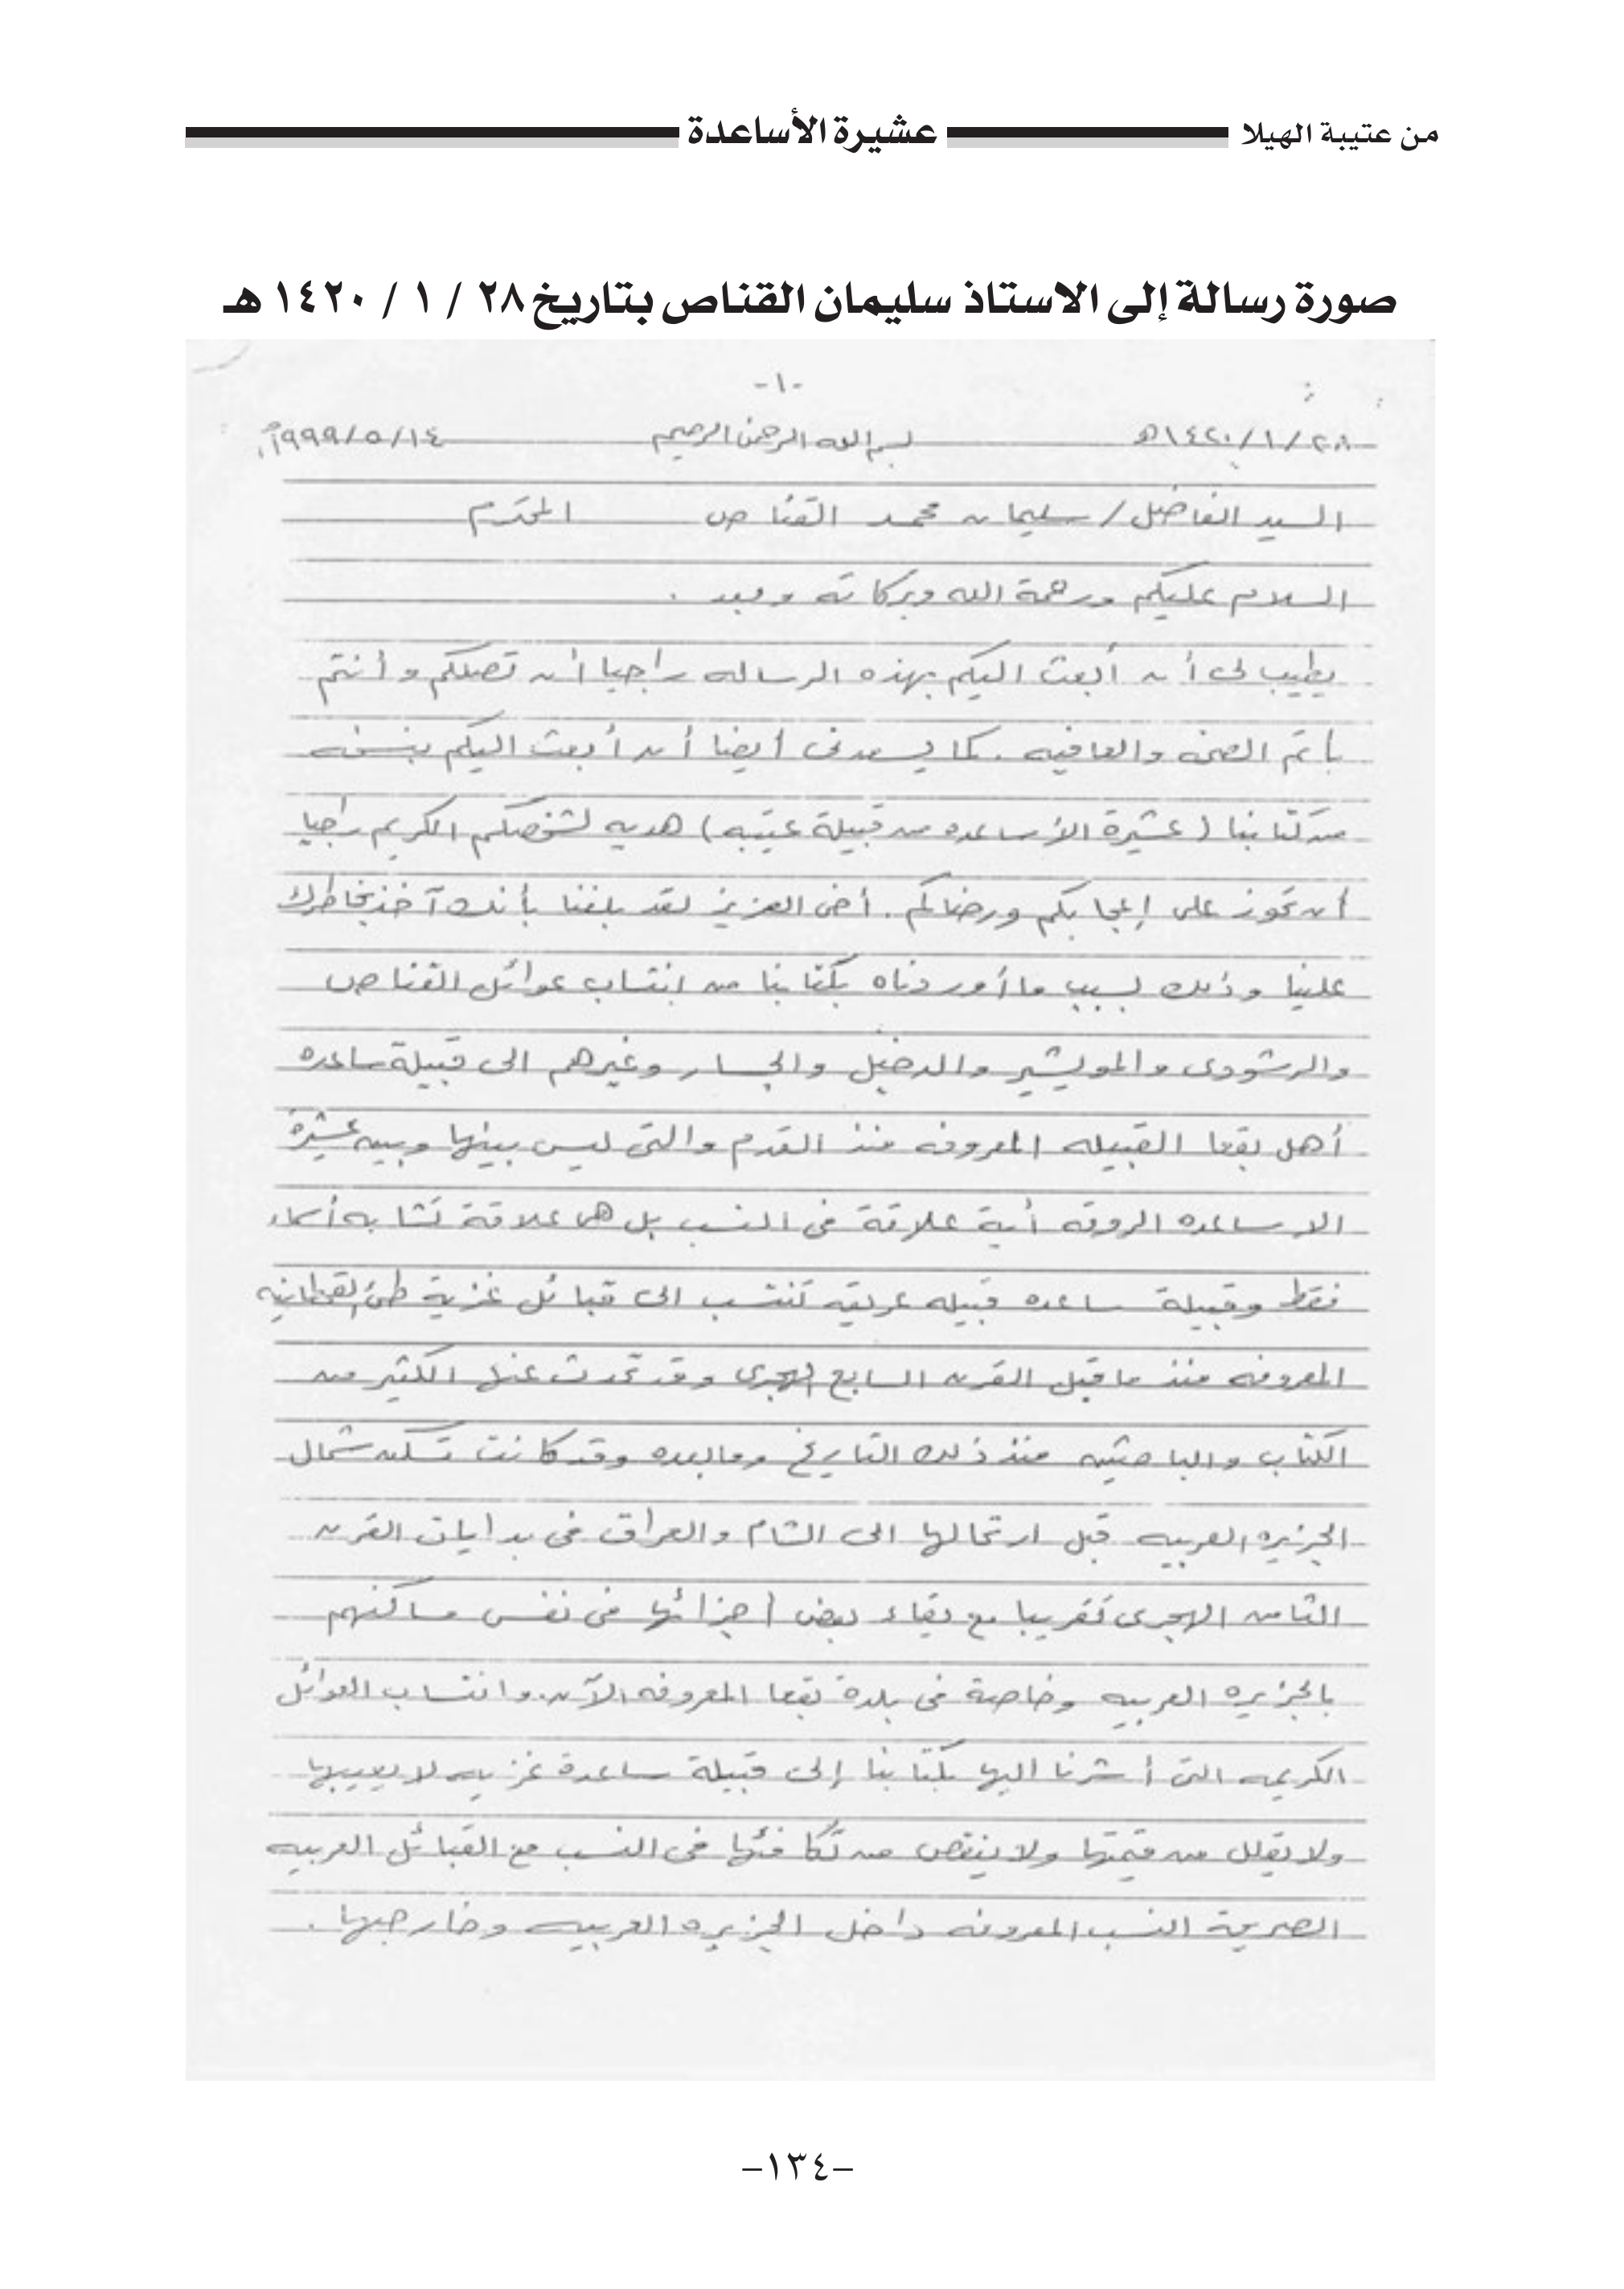 من عتيبة الهيلا عشيرة الأساعدة
صورة رسالة إلى الاستاذ سليمان القناص بتاريخ ٢٨ / ١ / ١٤٢٠ هـ
-١-
١٤٢٠/١/٢٨هـ بسم الله الرحمن الرحيم ١٩٩٩/٥/١٤م
السيد الفاضل / سليمان محمد القناص المحترم
السلام عليكم ورحمة الله وبركاته وبعد .
يطيب لى أن أبعث اليكم بهذه الرساله راجيا أن تصلكم وأنتم
بأتم الصحه والعافيه . كما يسعدنى أيضا أن أبعث اليكم بنسخه
من كتابنا ( عشيرة الأساعده من قبيلة عتيبه ) هديه لشخصكم الكريم راجيا
أن تحوز على إعجابكم ورضاكم . أخى العزيز لقد بلغنا بأنك آخذ بخاطرك
علينا وذلك بسبب ما أوردناه بكتابنا من انتساب عوائل القناص
والرشودى والمويشير والدخيل والجسار وغيرهم الى قبيلة ساعده
أهل بقعا القبيله المعروفه منذ القدم والتى ليس بينها وبين عشيرة
الاساعده الروقه أية علاقة فى النسب بل هى علاقة تشابه أسماء
فقط وقبيلة ساعده قبيله عريقه تنتسب الى قبائل غزية طئ القحطانيه
المعروفه منذ ما قبل القرن السابع الهجرى وقد تحدث عنها الكثير من
الكتاب والباحثين منذ ذلك التاريخ وما بعده وقد كانت تسكن شمال
الجزيره العربيه قبل ارتحالها الى الشام والعراق فى بدايات القرن
الثامن الهجرى تقريبا مع بقاء بعض أجزائها فى نفس مساكنهم
بالجزيره العربيه وخاصة فى بلدة بقعا المعروفه الآن. وانتساب العوائل
الكريمه التى أشرنا اليها بكتابنا إلى قبيلة ساعدة غزيه لا يعيبها
ولا يقلل من قيمتها ولا ينقص من تكافئها فى النسب مع القبائل العربيه
الصريحة النسب المعروفه داخل الجزيره العربيه وخارجها .
-١٣٤-